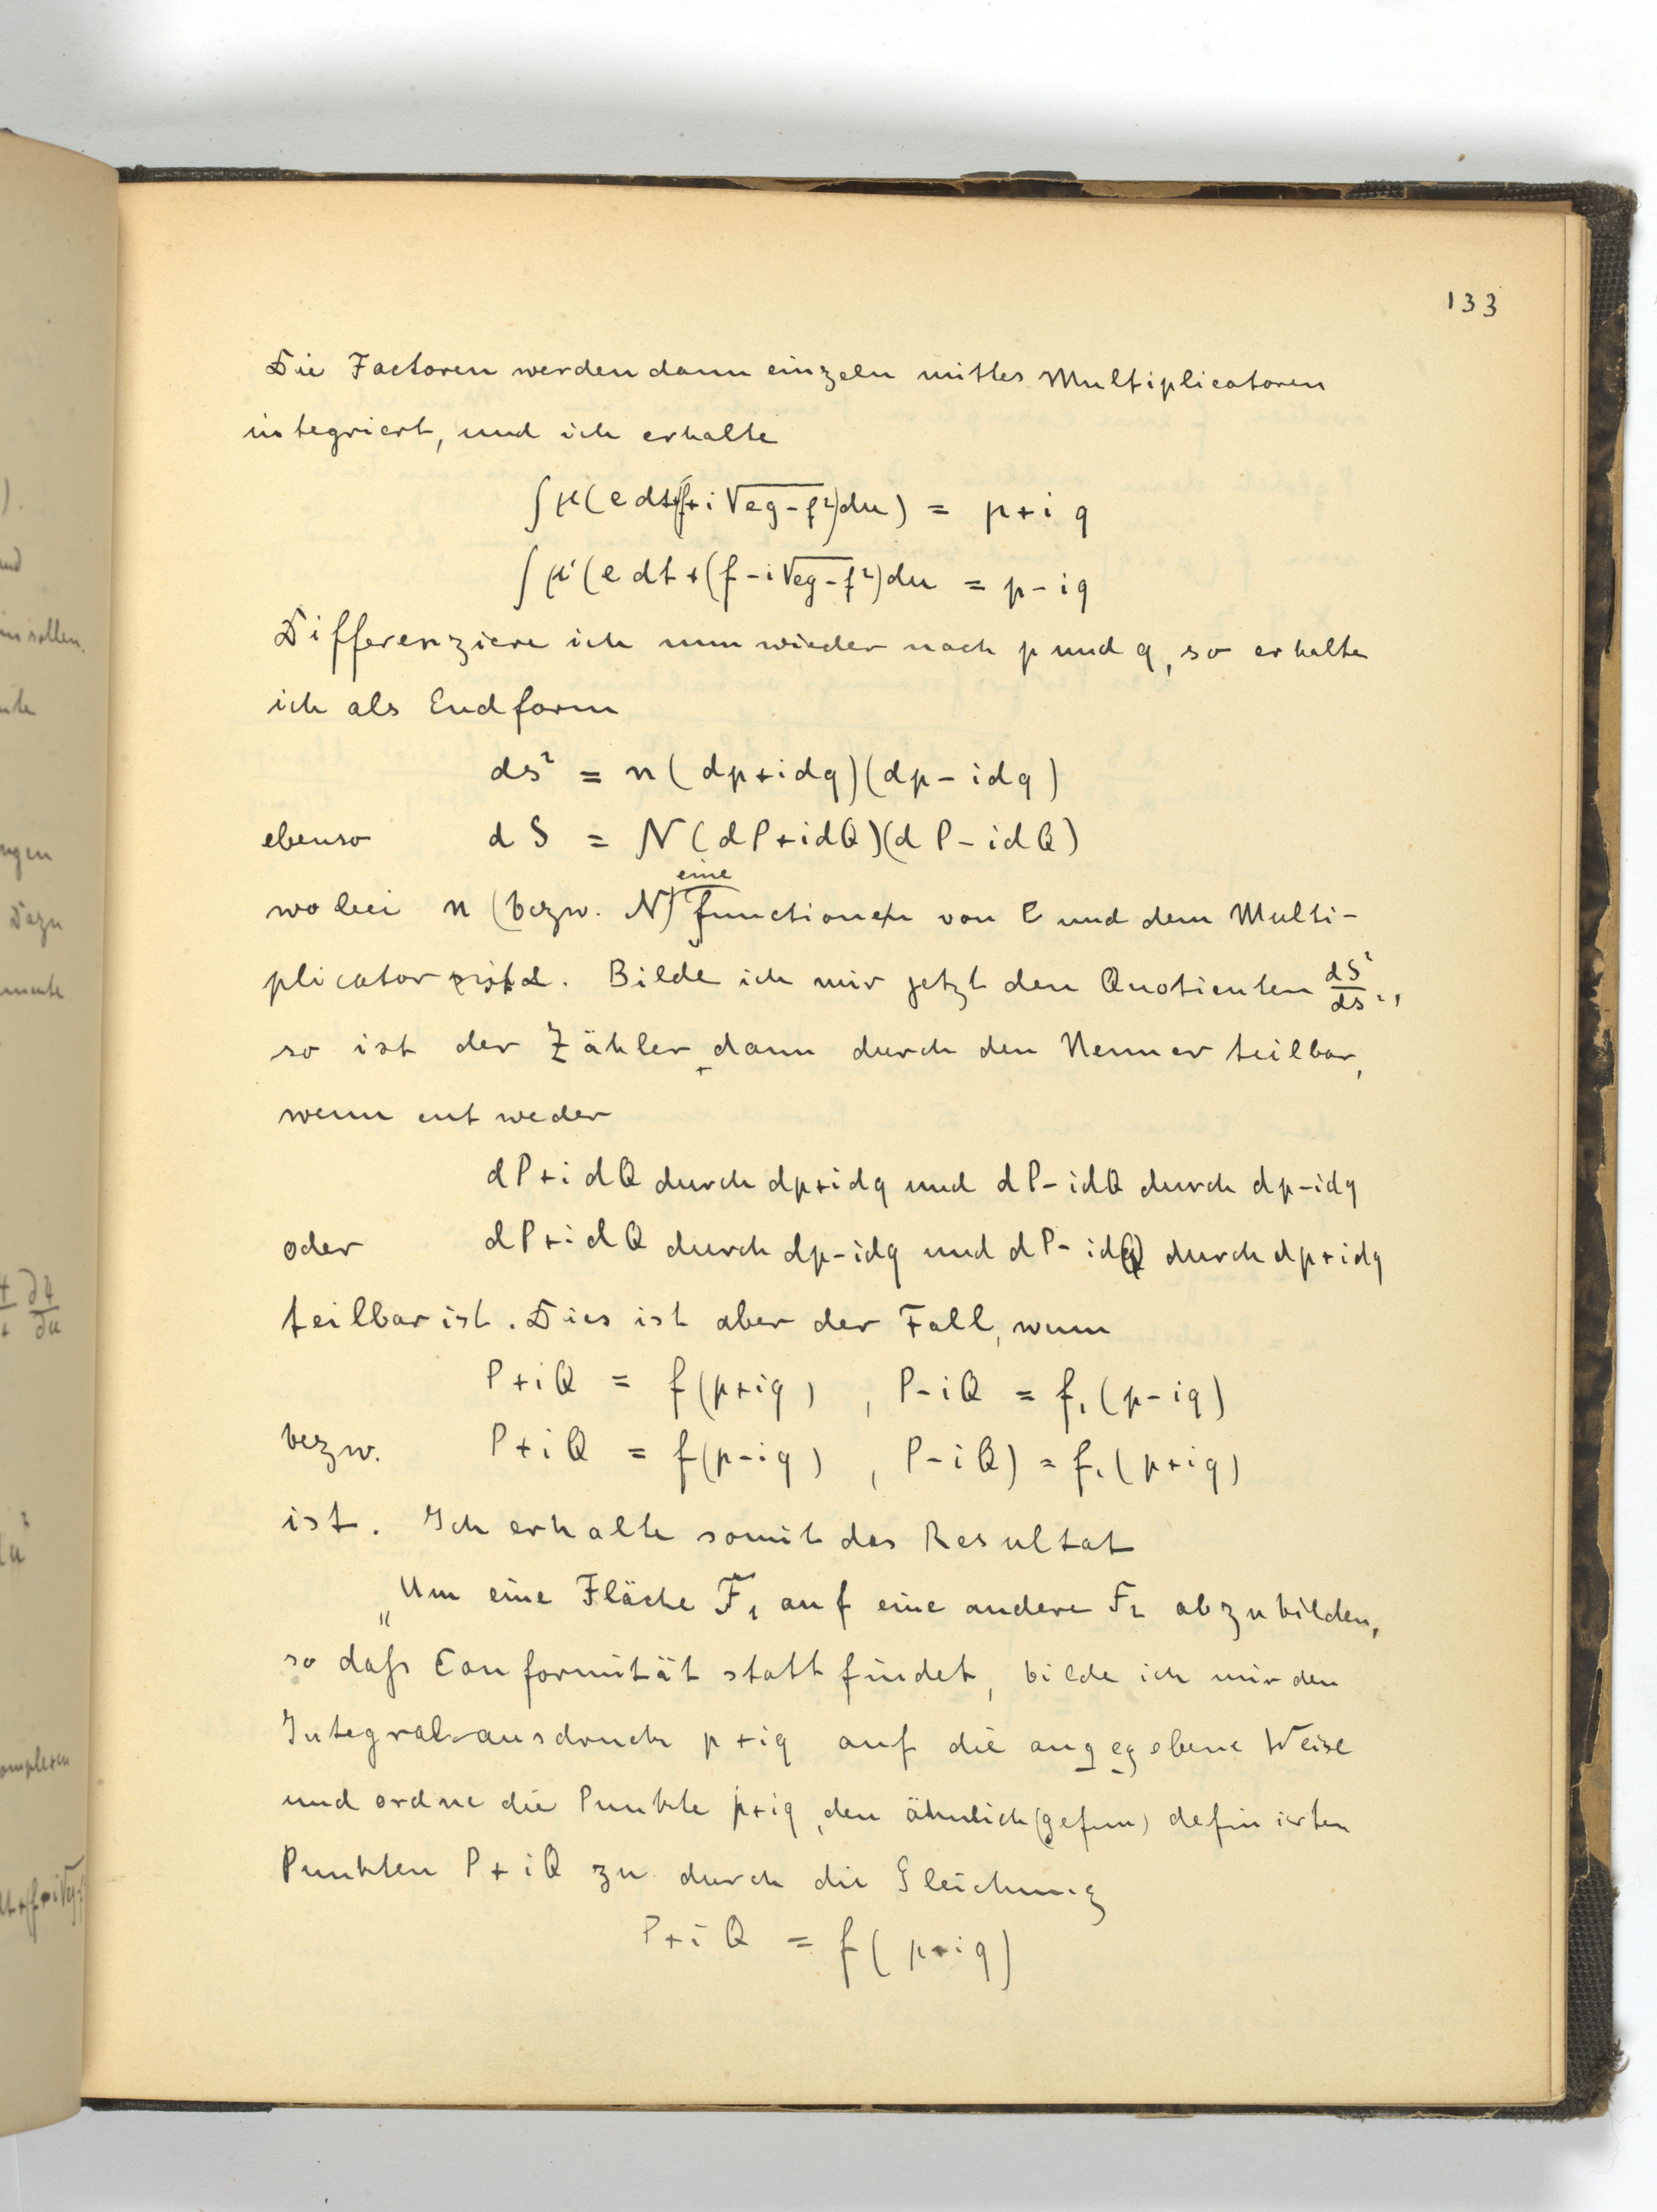 133
Die Factoren werden dann einzeln mittles Multiplicatoren
integriert, und ich erhalte
∫ μ(e dt+(f+i√(eg-f²))du) = p+iq
∫ μ'(e dt+(f-i√(eg-f²))du = p-iq
Differenziere ich nun wieder nach p und q, so erhalte
ich als Endform
ds² = n(dp+idq)(dp-idq)
ebenso dS = N(dP+idQ)(dP-idQ)
eine
wobei n (bezw. N) functionen von e und dem Multi-
plicator ist. Bilde ich mir jetzt den Quotienten dS²/ds²,
so ist der Zähler dann durch den Nenner teilbar,
wenn entweder
dP+idQ durch dp+idq und dP-idQ durch dp-idq
oder dP+idQ durch dp-idq und dP-idQ durch dp+idq
teilbar ist. Dies ist aber der Fall, wenn
P+iQ = f(p+iq), P-iQ = f₁(p-iq)
bezw. P+iQ = f(p-iq), P-iQ) = f₁(p+iq)
ist. Ich erhalte somit das Resultat
„Um eine Fläche F₁ auf eine andere F₂ abzubilden,
so daß Conformität stattfindet, bilde ich mir den
Integralausdruck p+iq auf die angegebene Weise
und ordne die Punkte p+iq, den ähnlich (gefun) definirten
Punkten P+iQ zu durch die Gleichung
P+iQ = f(p+iq)